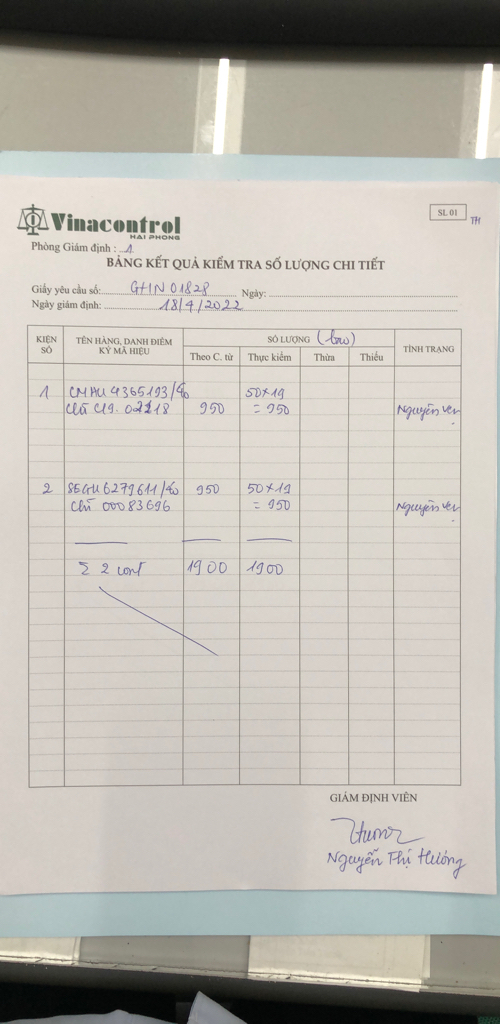 Vinacontrol
HAI PHONG
SL 01
TH
Phòng Giám định : 1
BẢNG KẾT QUẢ KIỂM TRA SỐ LƯỢNG CHI TIẾT
Giấy yêu cầu số: GHN 01828 Ngày:
Ngày giám định: 18/4/2022
KIỆN SỐ
TÊN HÀNG, DANH ĐIỂM KÝ MÃ HIỆU
SỐ LƯỢNG (bao)
Theo C. từ Thực kiểm Thừa Thiếu
TÌNH TRẠNG
1 CMAU 4365193/40 50×19
chì C19. 02218 950 = 950 Nguyên vẹn
2 SEGU 6279611/40 950 50×19
chì 00083696 = 950 Nguyên vẹn
Σ 2 cont 1900 1900
GIÁM ĐỊNH VIÊN
Nguyễn Thị Hương